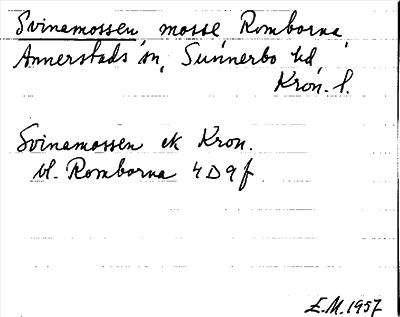 Svinamossen, mosse, Romborna,
Annerstads sn, Sunnerbo hd,
Kron. l.
Svinamossen ek Kron.
bl. Romborna 4 D 9 f
E.M. 1957